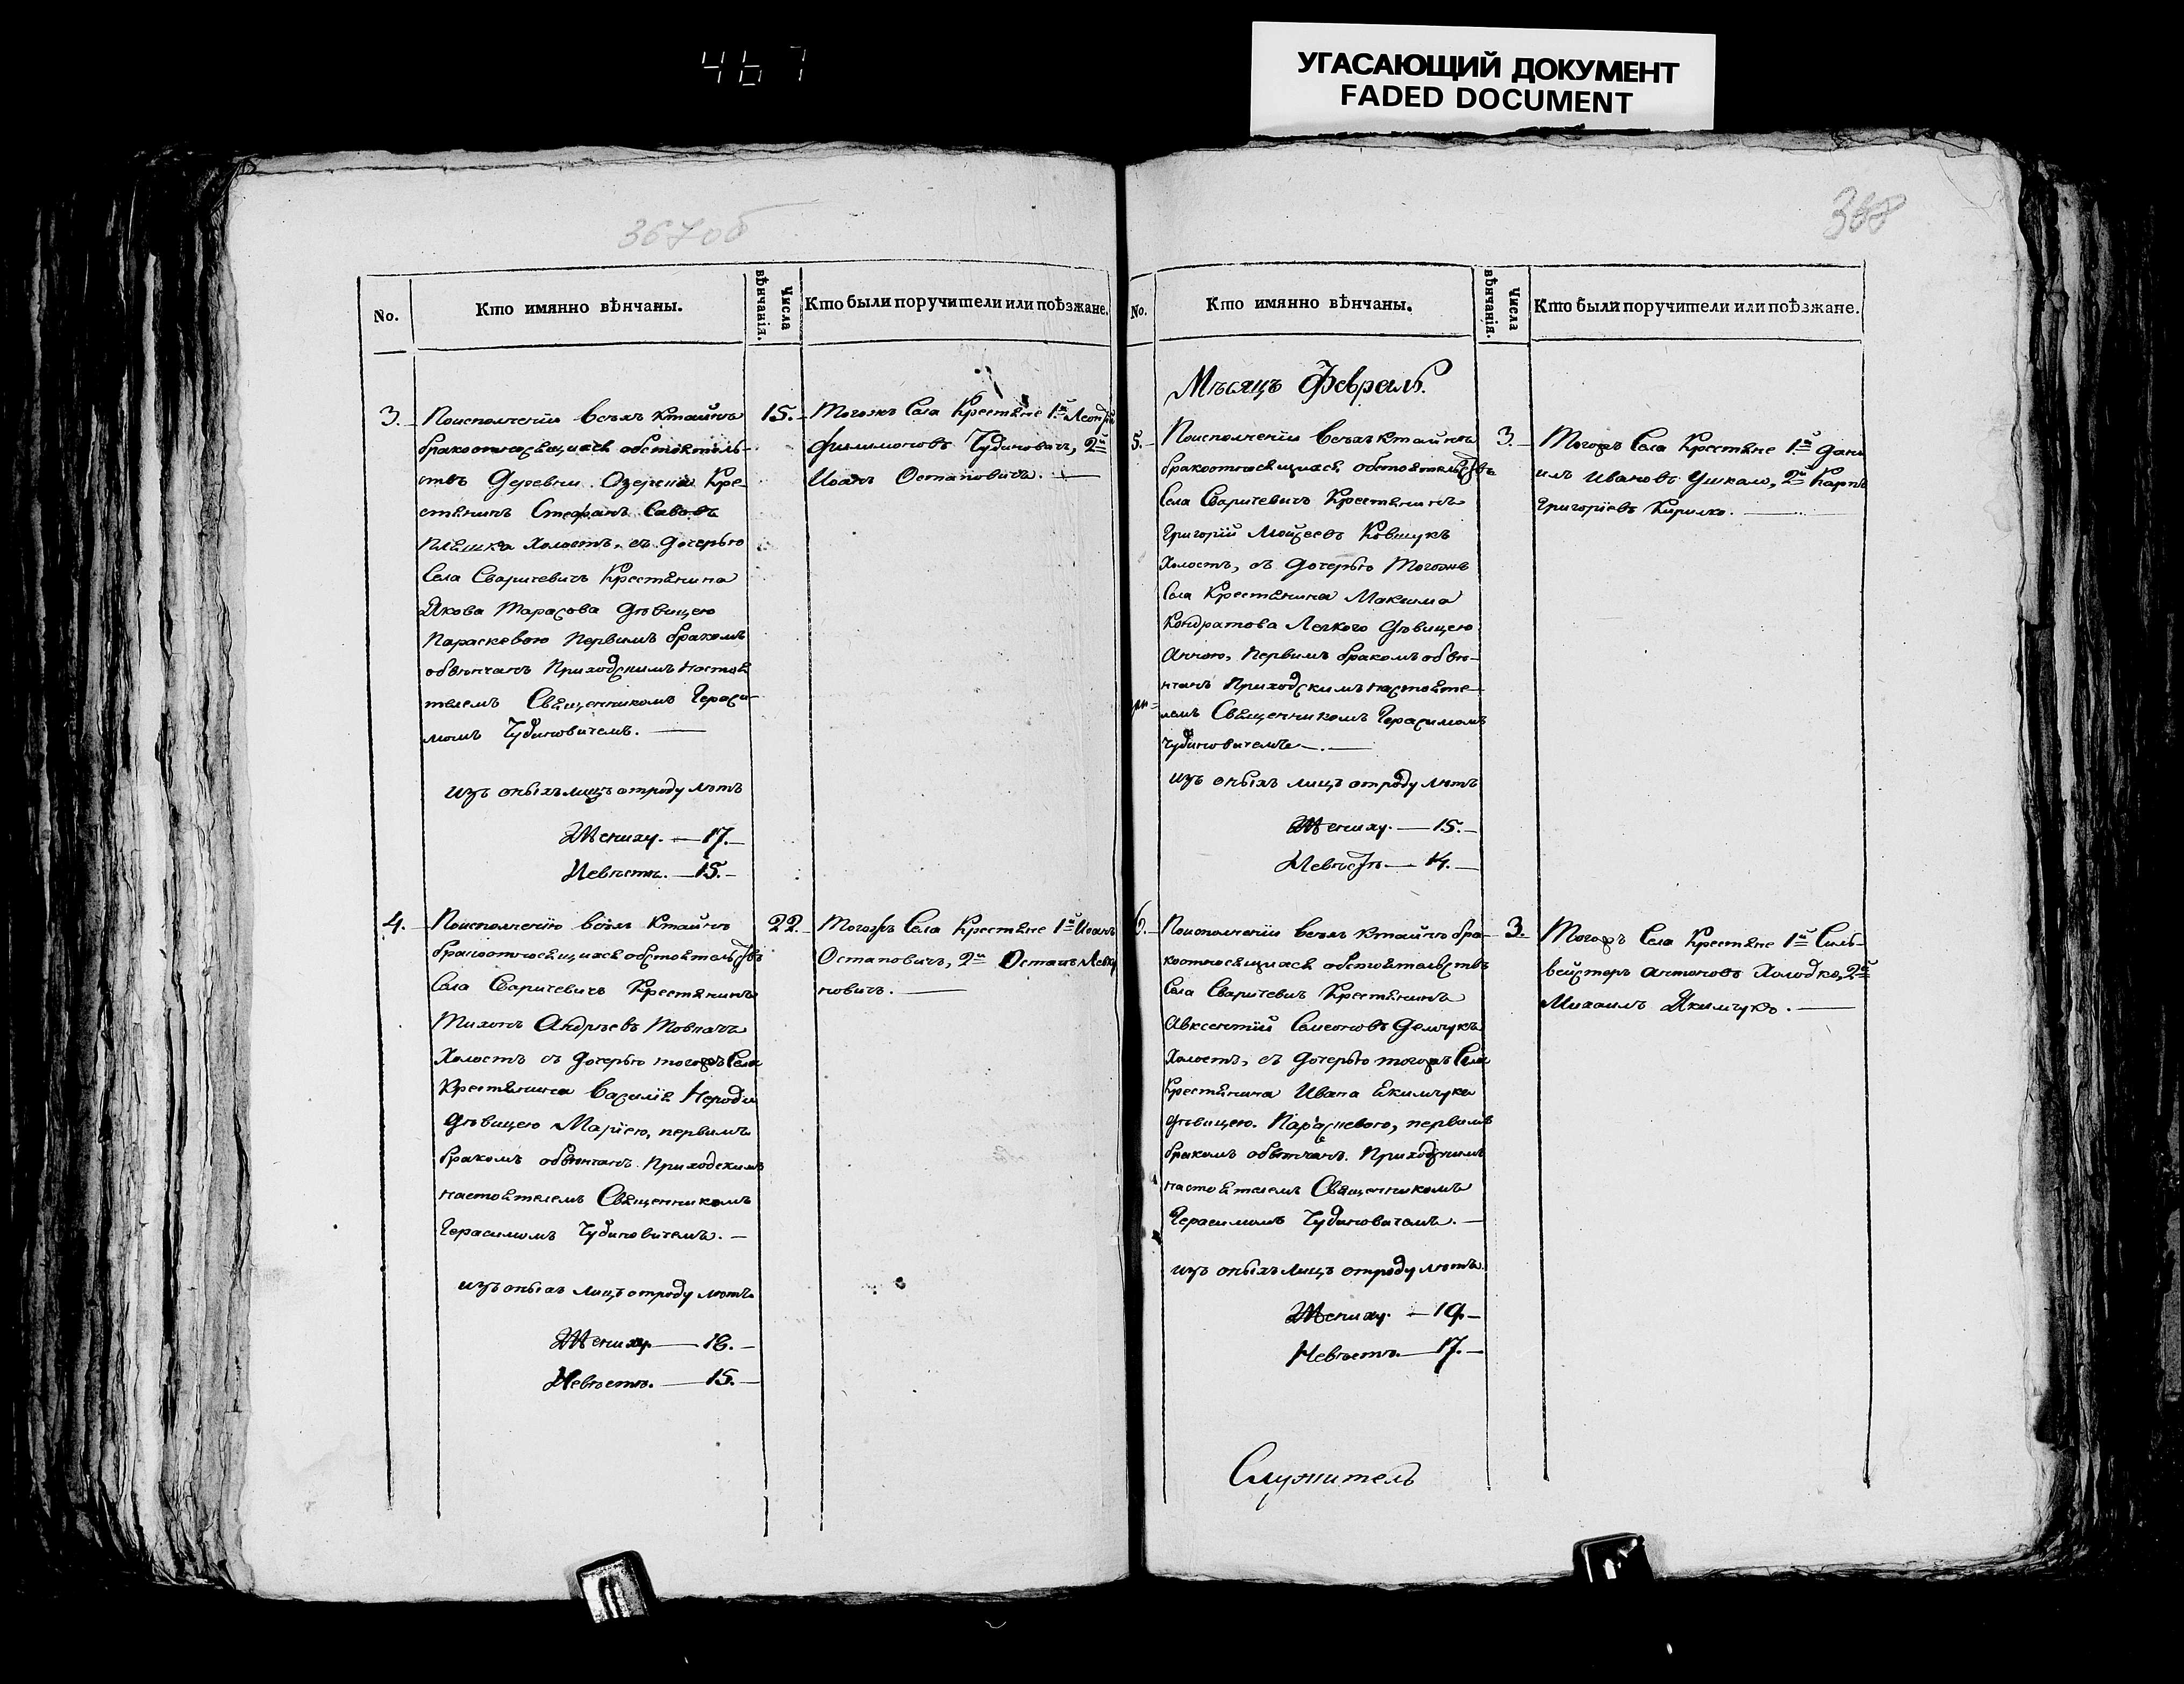 467
УГАСАЮЩИЙ ДОКУМЕНТ
FADED DOCUMENT
367 об
368
No.
Кто имянно вѣнчаны.
Числа вѣнчанія.
Кто были поручители или поѣзжане.
3.
Поисполненіи всѣхъ ктайнѣ
бракоотносящихся обстоятель-
ствъ Деревни Озерска Кре-
стянинъ Стефанъ Савовъ
холостъ, съ дочерью
Села Сваричевичъ Крестянина
Якова Тарасова дѣвицею
Параскевою первымъ бракомъ
обвѣнчанъ Приходскимъ настоя
телемъ Священникомъ Гераси-
момъ Чудиновичемъ.
изъ оныхъ лицъ отроду лѣтъ
Жениху. — 17.
Невѣстѣ. — 15.
15.
Тогожъ Села Крестяне 1й
Филимоновъ Чудиновичъ, 2й
Иоанъ Остаповичъ.
4.
Поисполненію всѣхъ ктайнѣ
бракоотносящихся обстоятельствъ
Села Сваричевичъ Крестянинъ
Тихонъ Андрѣевъ Товпачъ
Холостъ съ дочерью тогожъ Села
Крестянина Василія Нероди
дѣвицею Маріею, первымъ
бракомъ обвѣнчанъ Приходскимъ
настоятелемъ Священникомъ
Герасимомъ Чудиновичемъ. —
изъ оныхъ лицъ отроду лѣтъ
Жениху — 18. —
Невѣстѣ. — 15. —
22.
Тогожъ Села Крестяне 1й Иоанъ
Остаповичъ, 2й Остапъ Левку
новичъ. —
No.
Кто имянно вѣнчаны.
Числа вѣнчанія.
Кто были поручители или поѣзжане.
Мѣсяцъ Февраль.
5.
Поисполненіи всѣхъ ктайнѣ
бракоотносящихся обстоятельствъ
Села Сваричевичъ Крестянинъ
Григорій Мойсеевъ Ковшукъ
Холостъ, съ дочерью Тогожъ
Села Крестянина Максима
Кондратова Легкого дѣвицею
Анною, первымъ бракомъ обвѣ-
нчанъ Приходскимъ настояте-
лемъ Священникомъ Герасимомъ
Чудиновичемъ. —
изъ оныхъ лицъ отроду лѣтъ
Жениху. — 15. —
Невѣстѣ — 14. —
3.
Тогожъ Села Крестяне 1й Дани
илъ Ивановъ Ушкало, 2й Карпъ
Григоріевъ Кирилко. —
6.
Поисполненіи всѣхъ ктайнѣ бра-
коотносящихся обстоятельствъ
Села Сваричевичъ Крестянинъ
Авксентій Семеновъ Демчукъ
Холостъ, съ дочерью тогожъ Села
Крестянина Ивана Екимчука
дѣвицею Параскевою, первымъ
бракомъ обвѣнчанъ Приходскимъ
настоятелемъ Священникомъ
Герасимомъ Чудиновичемъ. —
изъ оныхъ лицъ отроду лѣтъ
Жениху. — 19. —
Невѣстѣ. — 17. —
3.
Тогожъ Села Крестяне 1й Силь-
вейстеръ Антоновъ Холодко, 2й
Михаилъ Якимчукъ. —
Служитель